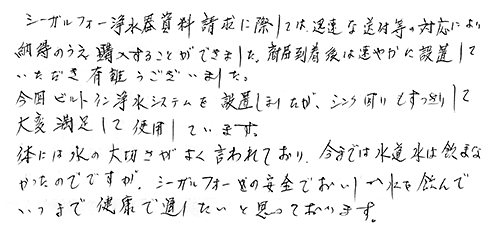 シーガルフォー浄水器資料請求に際しては、迅速な送付等の対応により
納得のうえ購入することができました。商品到着後は速やかに設置して
いただき有難うございました。
今回ビルトイン浄水システムを設置しましたが、シンク回りもすっきりして
大変満足して使用しています。
体には水の大切さがよく言われており、今までは水道水は飲まな
かったのですが、シーガルフォーの安全でおいしい水を飲んで
いつまで健康で過したいと思っております。